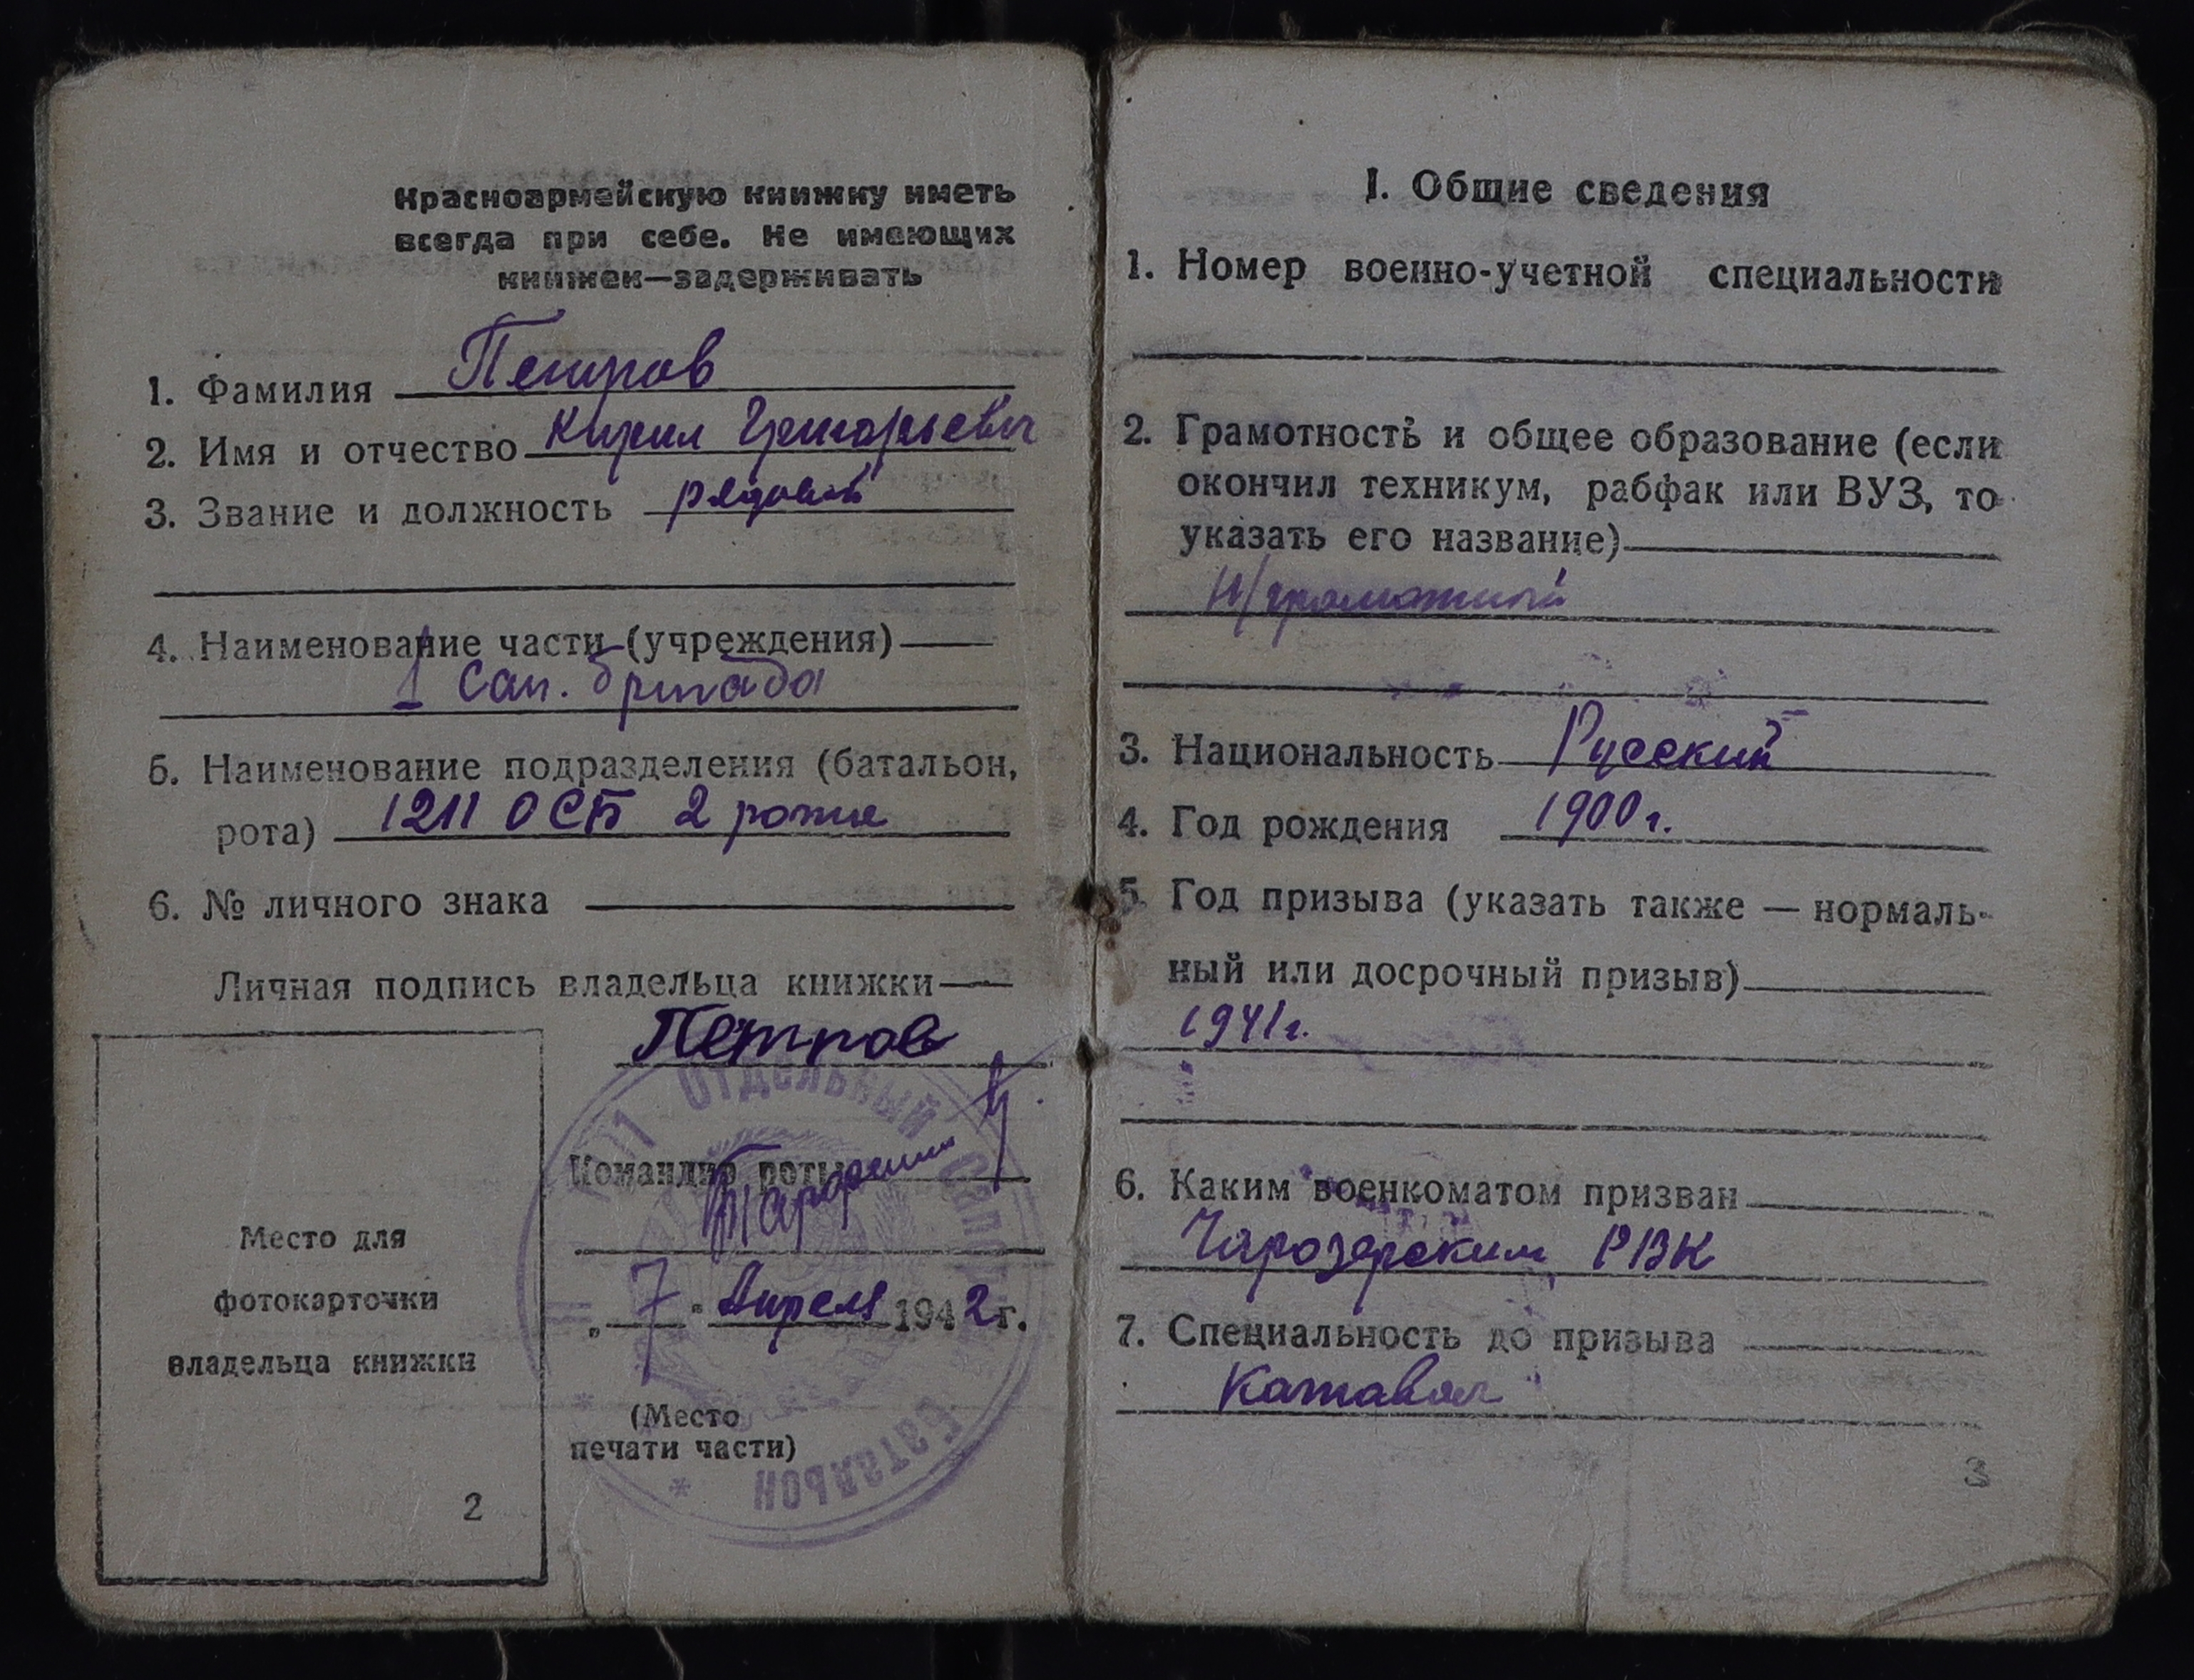 Красноармейскую книжку иметь
всегда при себе. Не имеющих
книжек—задерживать
1. Фамилия Петров
2. Имя и отчество Кирил Григорьевич
3. Звание и должность рядовой
4. Наименование части (учреждения)
1 Сап. бригада
5. Наименование подразделения (батальон,
рота) 1211 ОСБ 2 рота
6. № личного знака
Личная подпись владельца книжки
Петров
Командир роты
„7" Апреля 1942 г.
(Место
печати части)
Отдельный Сапёрный Батальон
Место для
фотокарточки
владельца книжки
2
I. Общие сведения
1. Номер военно-учетной специальности
2. Грамотность и общее образование (если
окончил техникум, рабфак или ВУЗ, то
указать его название)
н/грамотный
3. Национальность Русский
4. Год рождения 1900 г.
5. Год призыва (указать также — нормаль-
ный или досрочный призыв)
1941 г.
6. Каким военкоматом призван
Чарозерским РВК
7. Специальность до призыва
Катаваль
3